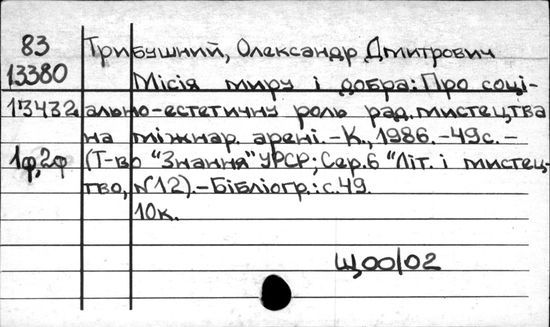 83 Трибушний, Олександр Дмитрович
13380 Місія миру і добра: Про соці-
13432 ально-естетичну роль рад. мистецтва
на міжнар. арені. – К., 1986. – 49с. –
1ф, 2ф (Т-во "Знання" УРСР; Сер. 6 "Літ. і мистец-
тво, №12). – Бібліогр.: с. 49.
10к.
Щ,00/02